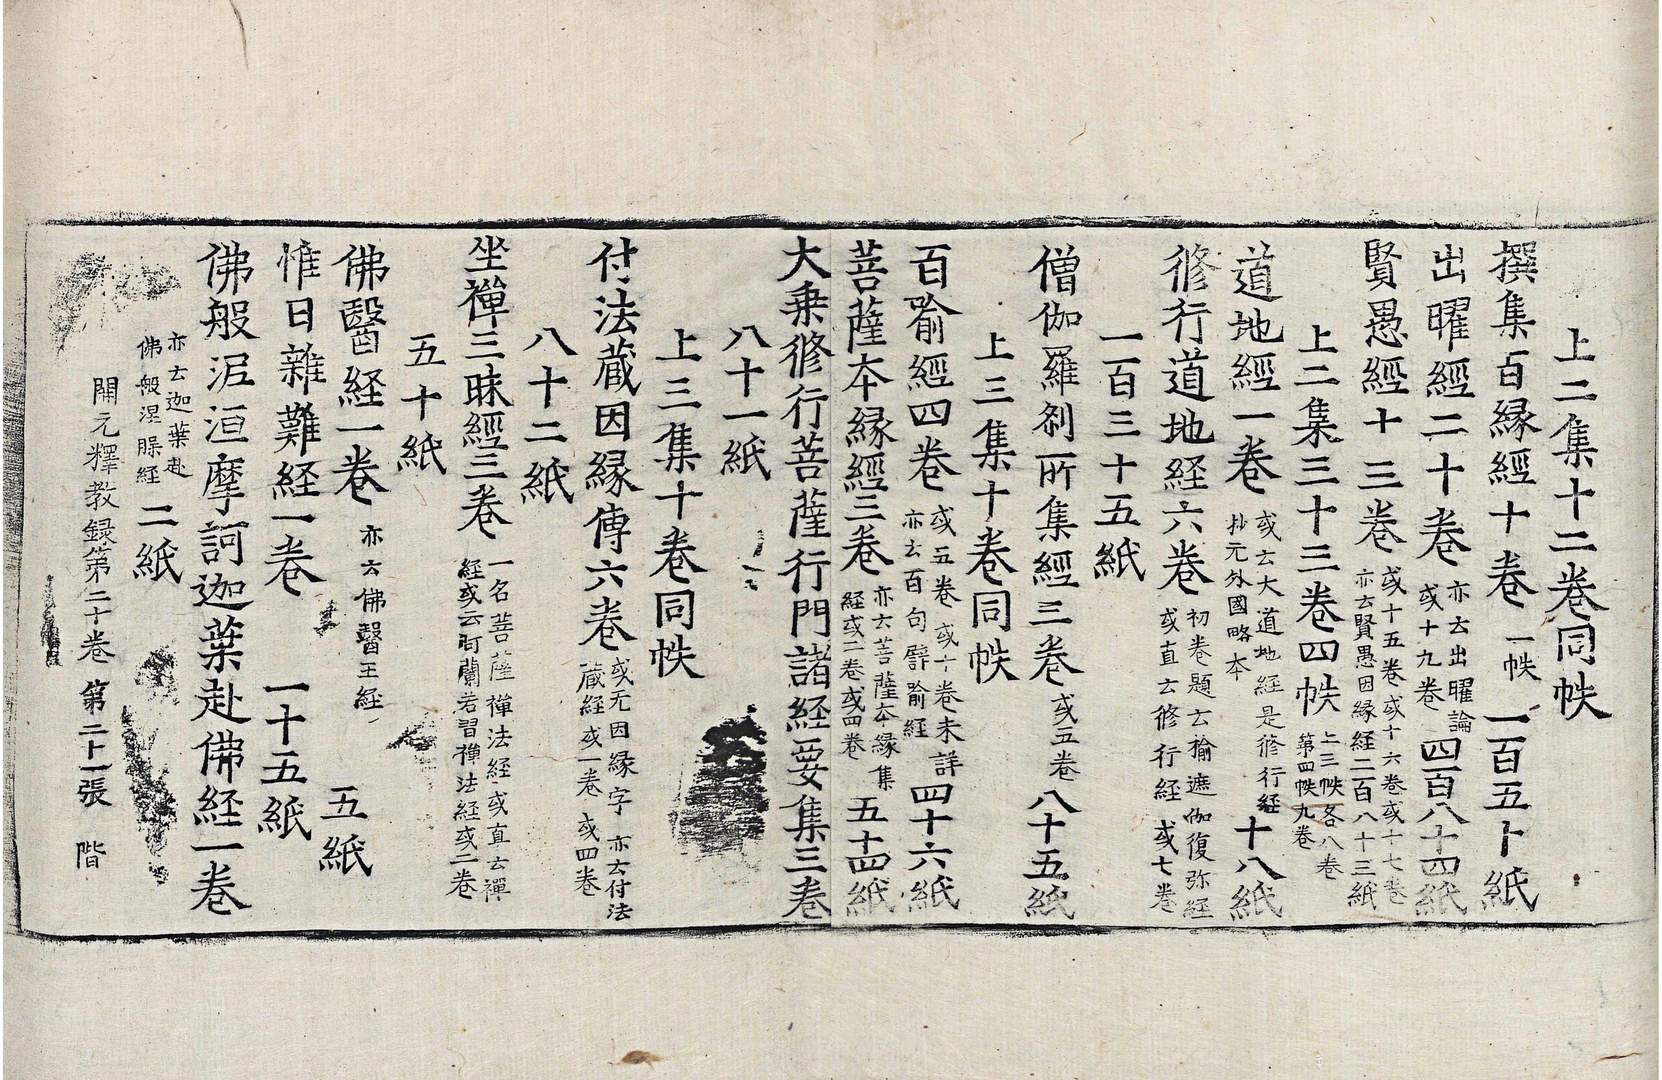 上二集十二卷同帙
撰集百縁經十卷 一帙 一百五十紙
出曜經二十卷 亦云出曜論 或十九卷 四百八十四紙
賢愚經十三卷 或十五卷或十六卷或十七卷 亦云賢愚因縁經二百八十三紙
上二集三十三卷四帙 上三帙各八卷 第四帙九卷
道地經一卷 或云大道地經是修行經 抄元外國略本 十八紙
修行道地経六卷 初卷題云揄遮伽復弥経 或直云修行経 或七卷
一百三十五紙
僧伽羅剎所集經三卷 或五卷 八十五紙
上三集十卷同帙
百喻經四卷 或五卷或十卷未詳 亦云百句譬喻経 四十六紙
菩薩本縁經三卷 亦云菩薩本縁集 経或二卷或四卷 五十四紙
大乗修行菩薩行門諸経要集三卷
八十一紙
上三集十卷同帙
付法蔵因縁傳六卷 或无因縁字 亦云付法 蔵経或一卷 或四卷
八十二紙
坐禪三昧經三卷 一名菩薩禪法経或直云禪 経或云阿蘭若習禪法経或二卷
五十紙
佛醫経一卷 亦云佛醫王経 五紙
惟日雜難経一卷 一十五紙
佛般泥洹摩訶迦葉赴佛経一卷
亦云迦葉赴 佛般涅槃経 二紙
開元釋教録第二十卷 第二十一張 階